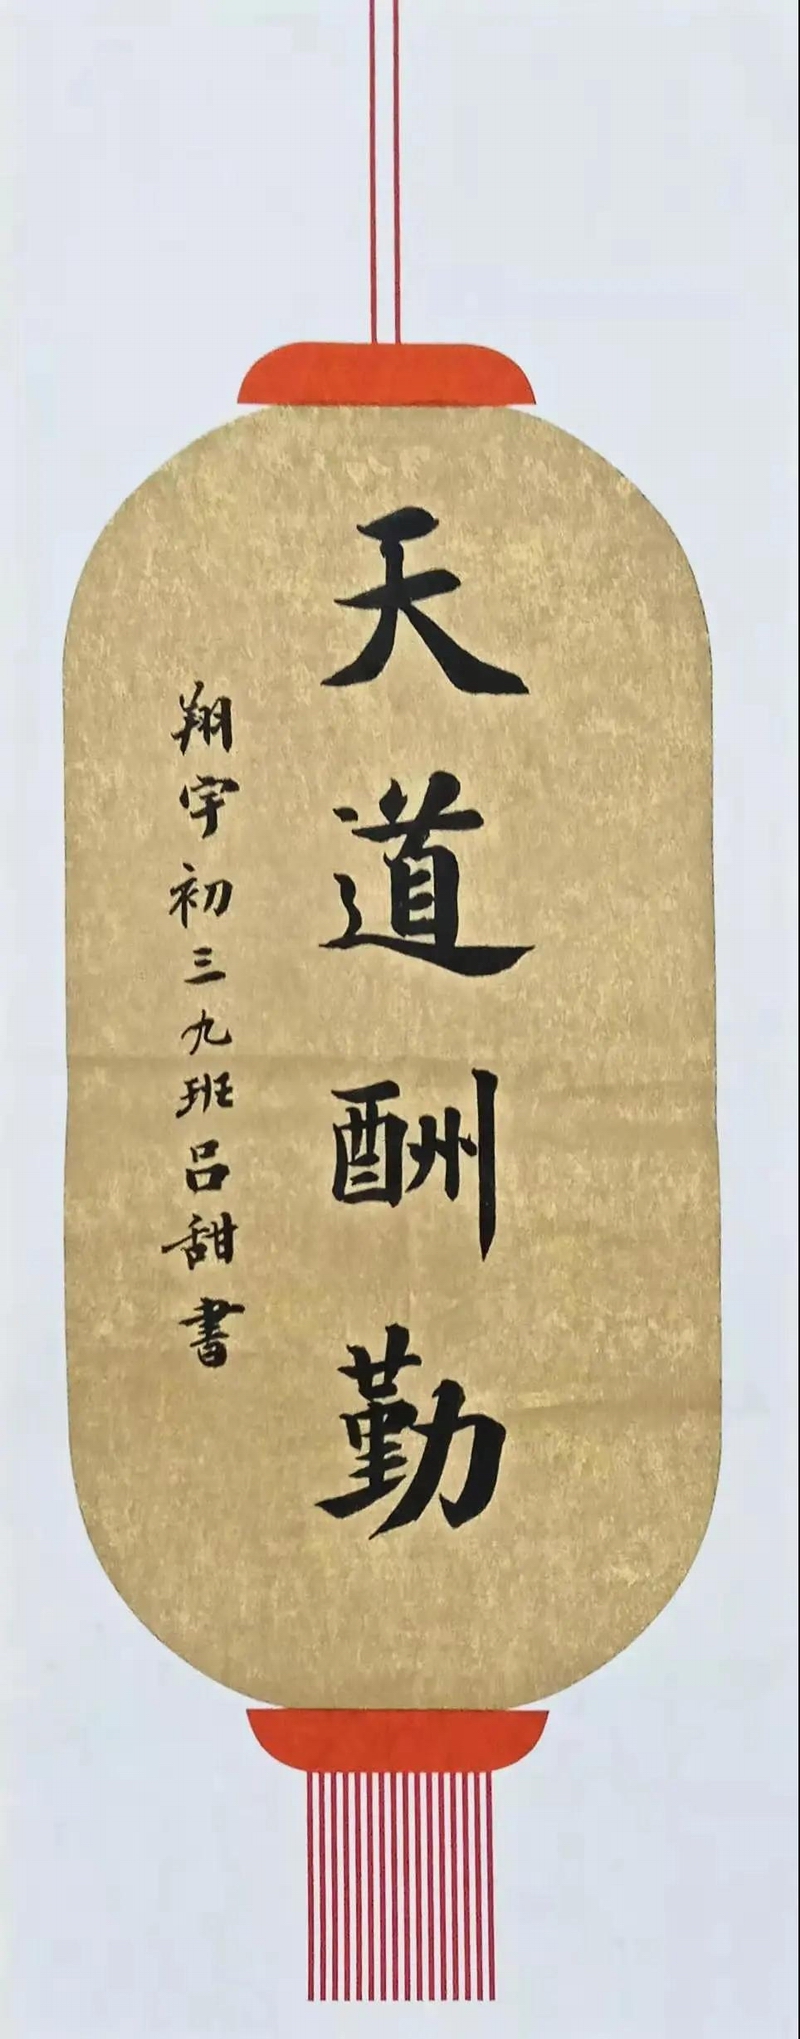 天道酬勤
翔宇初三九班吕甜書